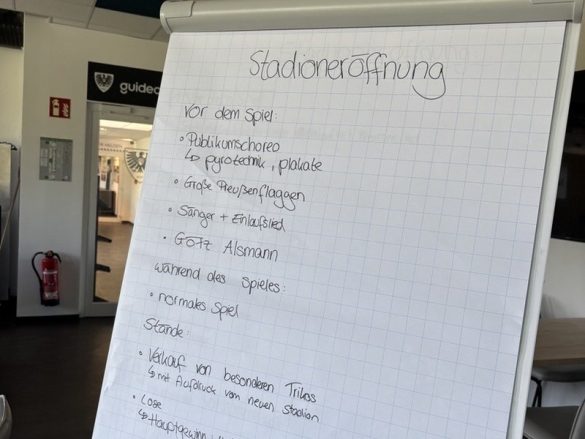 guidec
Stadioneröffnung
Vor dem Spiel:
• Publikumschoreo
↳ pyrotechnik, plakate
• Große Preußenflaggen
• Sänger + Einlauflied
• Götz Alsmann
während des Spieles:
• normales Spiel
Stände:
• Verkauf von besonderen Trikos
↳ mit Aufdruck vom neuen Stadion
• Lose
↳ Hauptgewinn